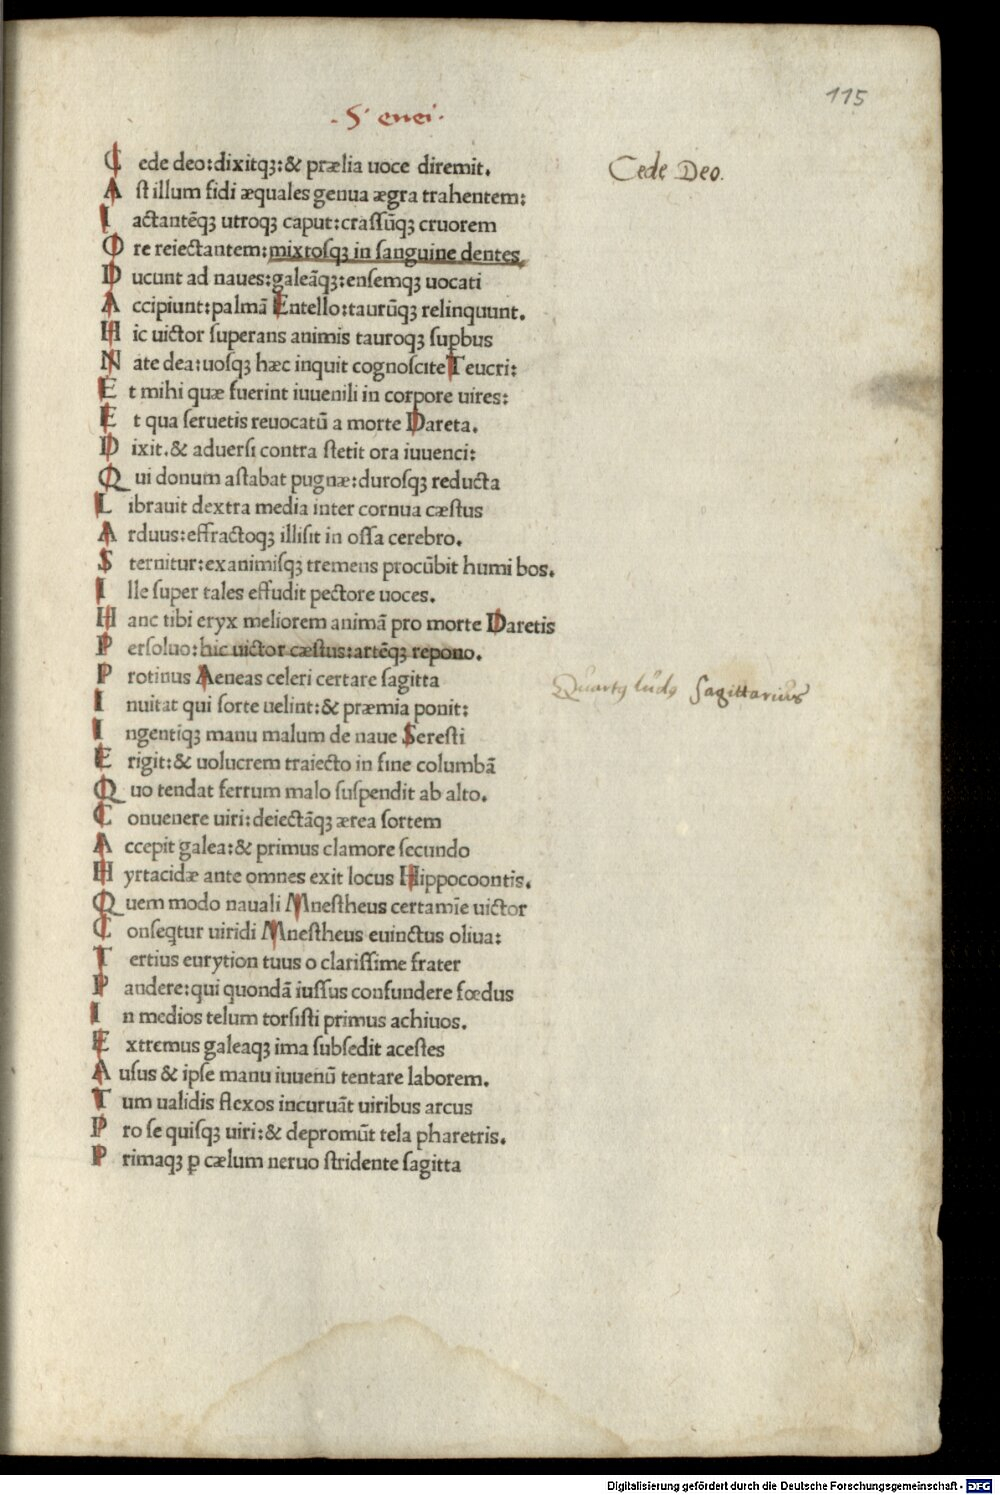 115
.5. enei.
Cede deo:dixitqȝ:& prælia uoce diremit.
Cede Deo.
Aſt illum fidi æquales genua ægra trahentem:
Iactantēqȝ utroqȝ caput:craſſūqȝ cruorem
Ore reiectantem:mixtoſqȝ in ſanguine dentes
Ducunt ad naues:galeāqȝ:enſemqȝ uocati
Accipiunt:palmā Entello:taurūqȝ relinquunt.
Hic uictor ſuperans animis tauroqȝ suꝑbus
Nate dea:uoſqȝ hæc inquit cognoſcite Teucri:
Et mihi quæ fuerint iuuenili in corpore uires:
Et qua ſeruetis reuocatū a morte Dareta.
Dixit.& aduerſi contra ſtetit ora iuuenci:
Qui donum aſtabat pugnæ:duroſqȝ reducta
Librauit dextra media inter cornua cæſtus
Arduus:effractoqȝ illiſit in oſſa cerebro.
Sternitur:exanimiſqȝ tremens procūbit humi bos.
Ille ſuper tales effudit pectore uoces.
Hanc tibi eryx meliorem animā pro morte Daretis
Perſoluo:hic uictor cæſtus:artēqȝ repono.
Protinus Aeneas celeri certare ſagitta
Quartꝰ lúdꝰ Sagittariús
Inuitat qui ſorte uelint:& præmia ponit:
Ingentiqȝ manu malum de naue Sereſti
Erigit:& uolucrem traiecto in fine columbā
Quo tendat ferrum malo ſuſpendit ab alto.
Conuenere uiri:deiectāqȝ ærea ſortem
Accepit galea:& primus clamore ſecundo
Hyrtacidæ ante omnes exit locus Hippocoontis.
Quem modo nauali Mneſtheus certamīe uictor
Conſeqtur uiridi Mneſtheus euinctus oliua:
Tertius eurytion tuus o clariſſime frater
Pandere:qui quondā iuſſus confundere fœdus
In medios telum torſiſti primus achiuos.
Extremus galeaqȝ ima ſubſedit aceſtes
Auſus & ipſe manu iuuenū tentare laborem.
Tum ualidis flexos incuruāt uiribus arcus
Pro ſe quiſqȝ uiri:& depromūt tela pharetris.
Primaqȝ ꝑ cælum neruo ſtridente ſagitta
Digitalisierung gefördert durch die Deutsche Forschungsgemeinschaft - DFG